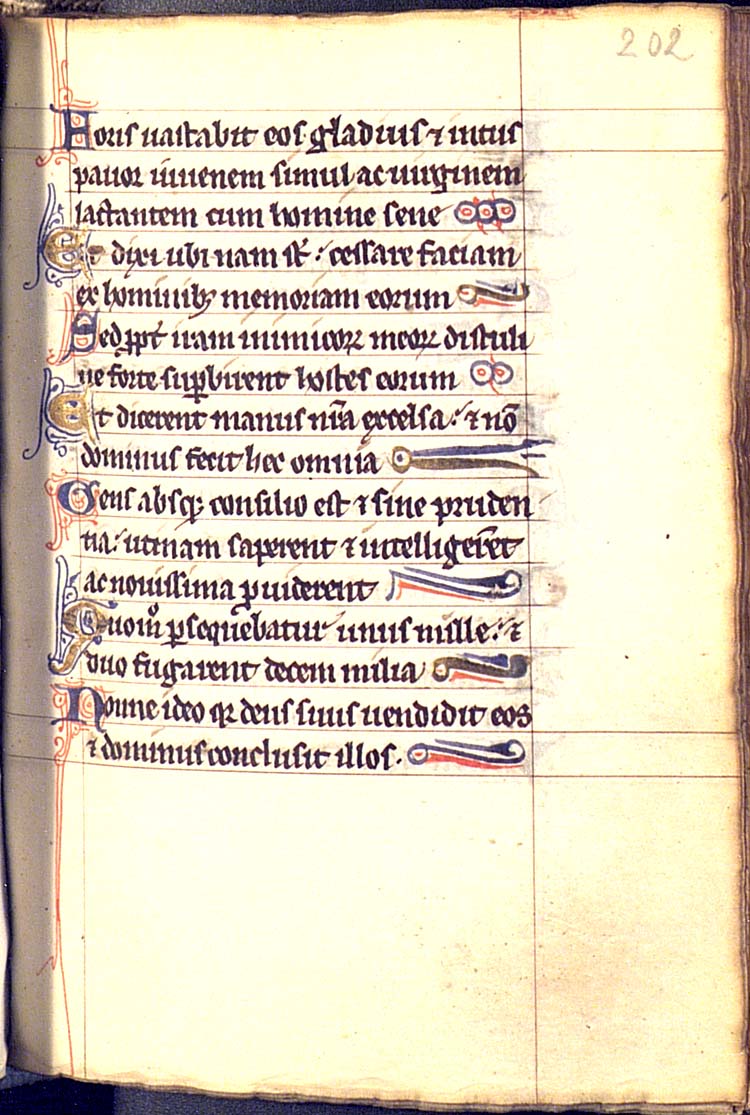 202
Foris uastabit eos gladius ⁊ intus
pauor iuuenem simul ac uirginem
lactantem cum homine sene
Et dixi ubi nam st̄ : cessare faciam
ex hominibꝫ memoriam eorum
Sed ꝓpt̄ iram inimicoꝝ meoꝝ distuli
ne forte suꝑbirent hostes eorum
Et dicerent manus nr̄a excelsa : ⁊ nō
dominus fecit hec omnia
Gens absqꝫ consilio est ⁊ sine pruden
tia : utinam saperent ⁊ intelligerēt
ac nouissima ꝓuiderent
Quom̊ ꝑsequebatur unus mille : ⁊
duo fugarent decem milia
Nonne ideo qꝛ deus suus uendidit eos
⁊ dominus conclusit illos .